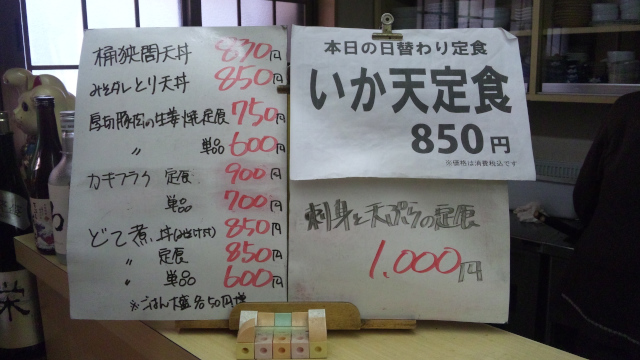 桶狭間天丼 870円
みそダレとり天丼 850円
厚切豚肉の生姜焼定食 750円
〃 単品 600円
カキフライ 定食 900円
単品 700円
どて煮 丼(みそ汁付) 850円
〃 定食 850円
〃 単品 600円
※ごはん大盛各50円増
本日の日替わり定食
いか天定食
850円
※価格は消費税込です
刺身と天ぷらの定食
1,000円
栄